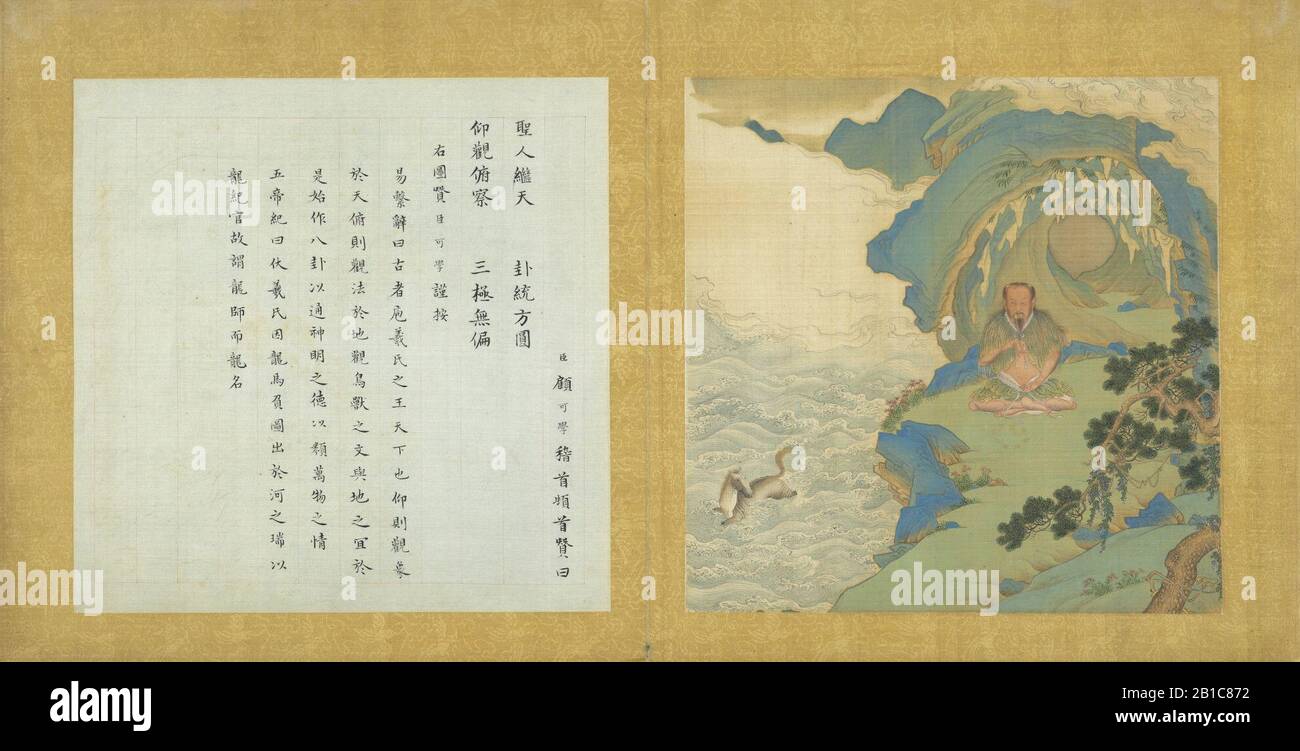 臣顧可學稽首頓首贊曰
聖人繼天 卦統方圓
仰觀俯察 三極無偏
右圖贊臣可學謹按
易繫辭曰古者庖羲氏之王天下也仰則觀象
於天俯則觀法於地觀鳥獸之文與地之宜於
是始作八卦以通神明之德以類萬物之情
五帝紀曰伏羲氏因龍馬負圖出於河之瑞以
龍紀官故謂龍師而龍名
alamy
Image ID: 2B1C872
www.alamy.com